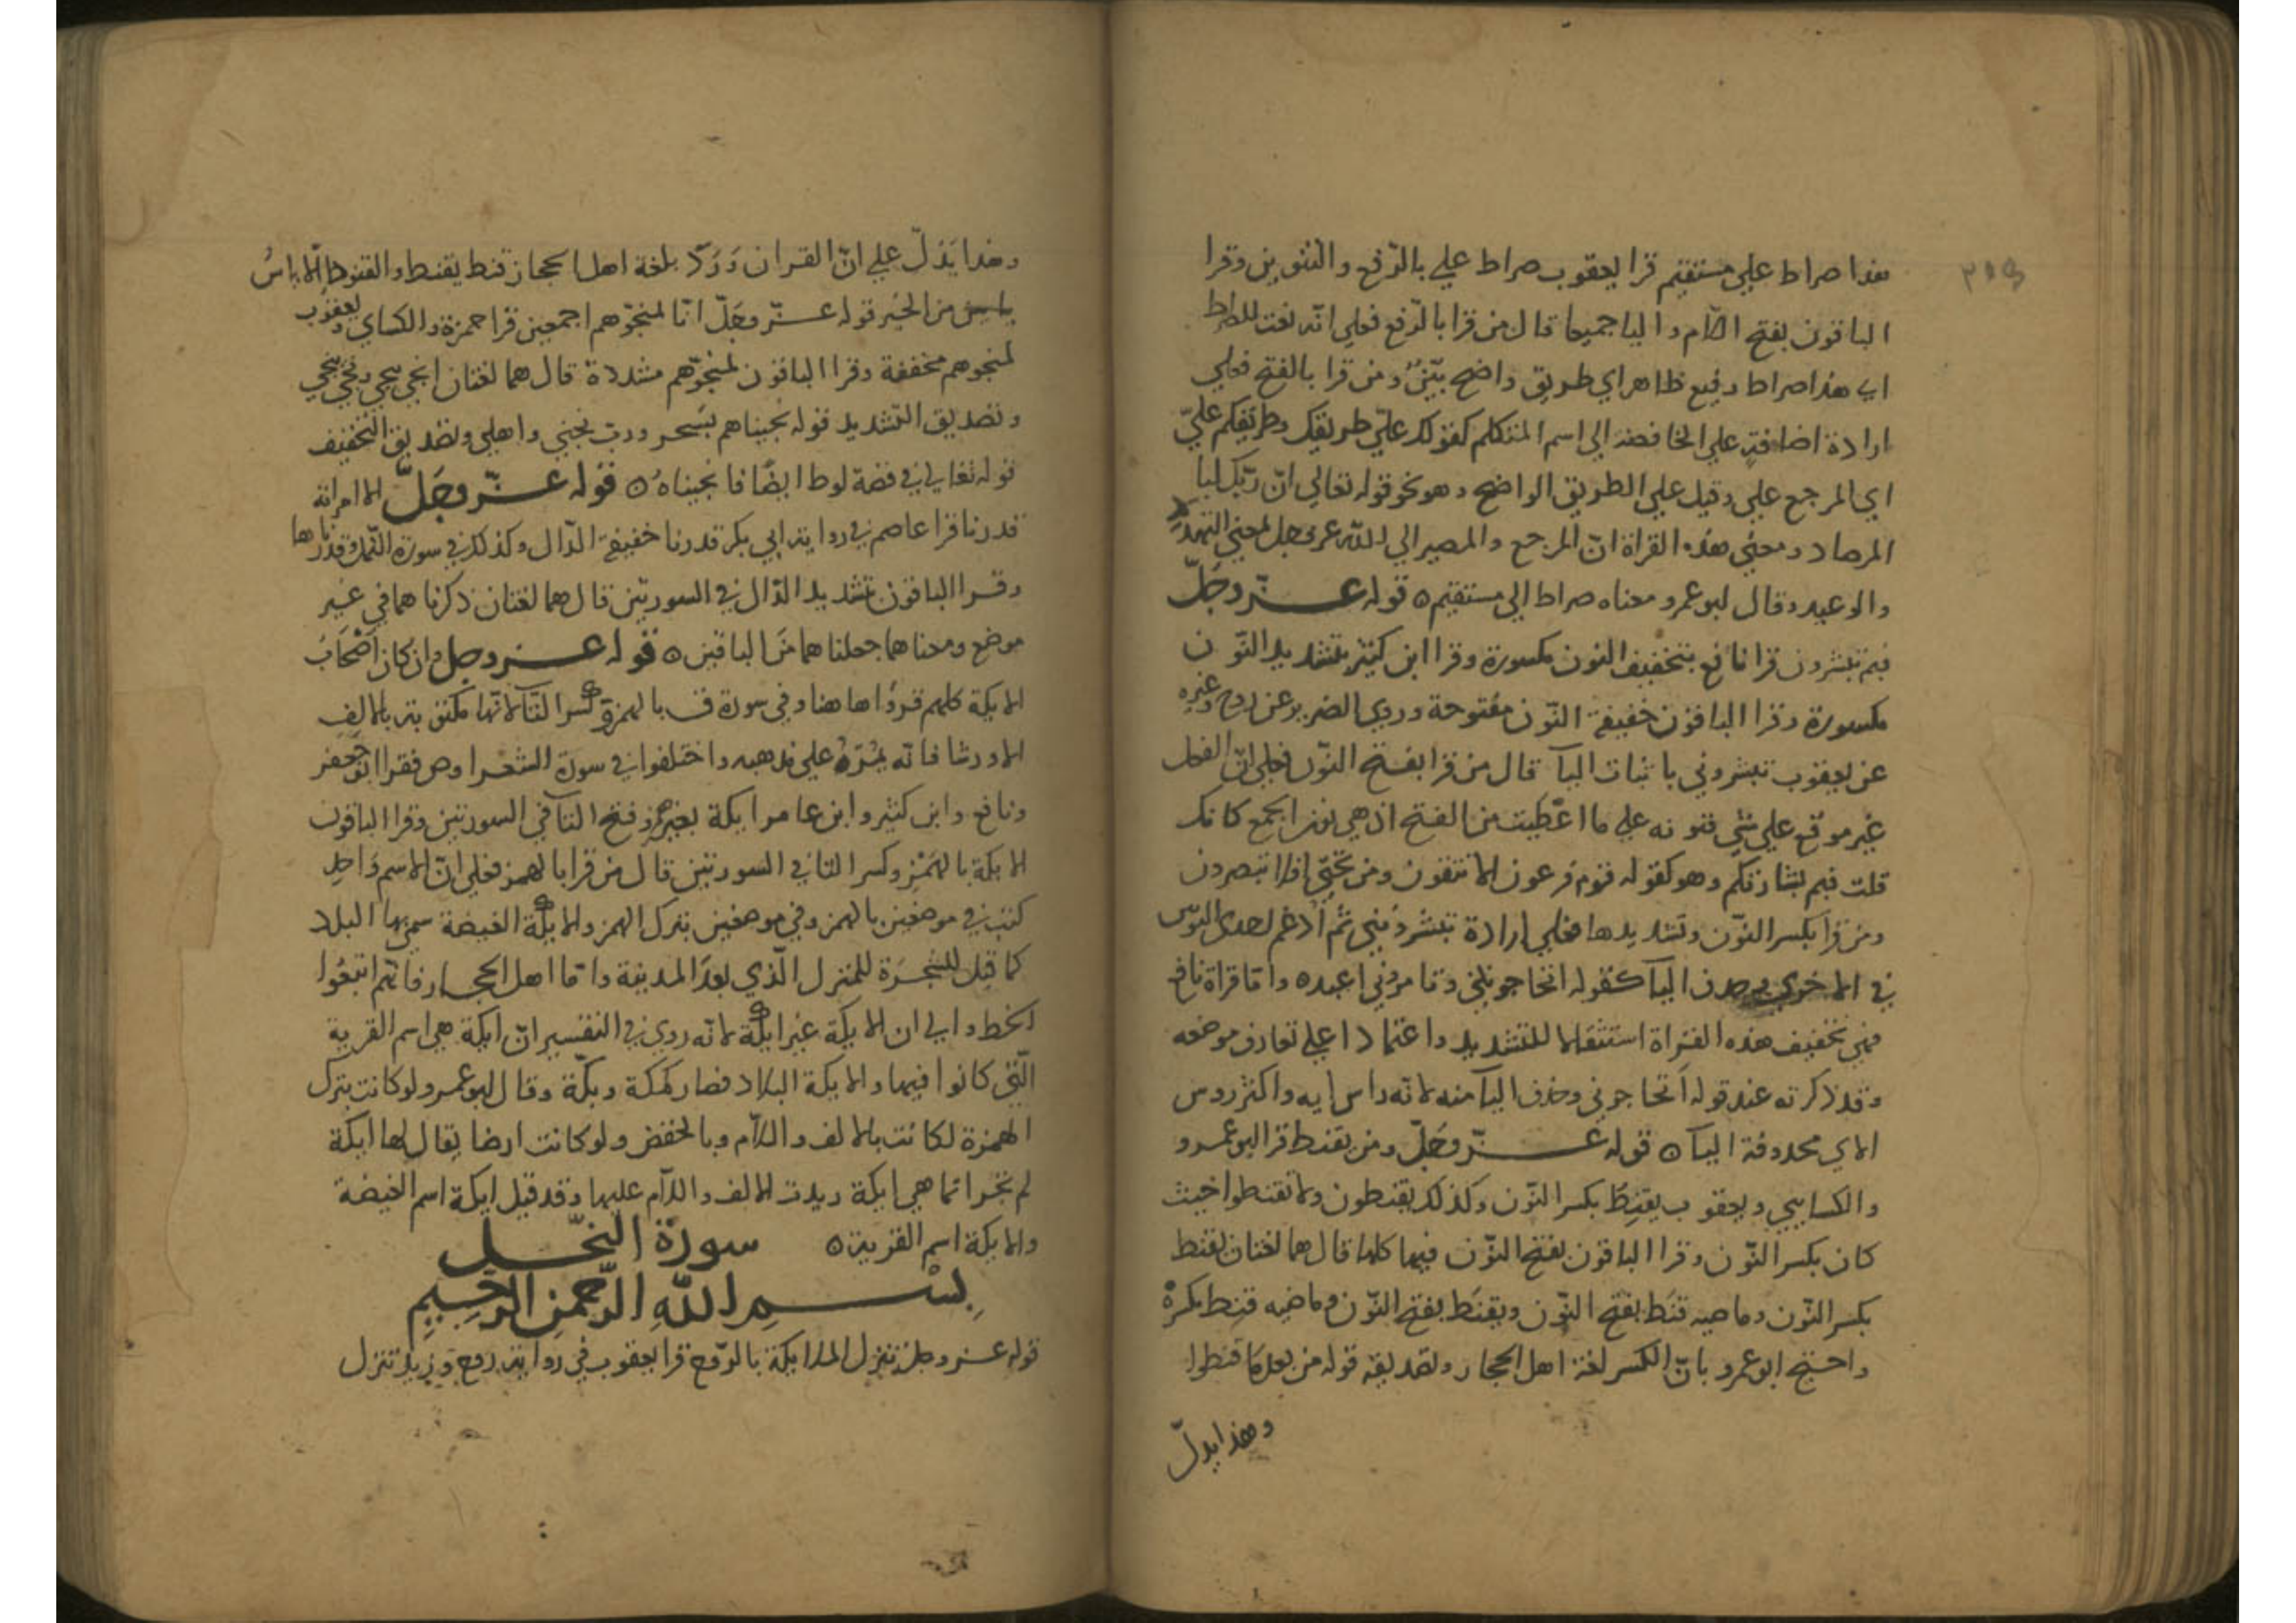 هذا صراط علي مستقيم قرا يعقوب صراط علي بالرّفع والتّنوين وقرا
الباقون بفتح اللّام واليا جميعا قال من قرا بالرّفع فعلي انّه نعت للصراط
اي هذا صراط رفيع ظاهر اي طريق واضح بيّن ومن قرا بالفتح فعلي
ارادة اضافة علي الخافضة الي اسم المتكلم كقولك عليّ طريقك وطريقكم عليّ
اي المرجع علي وقيل علي الطريق الواضح وهو نحو قوله تعالي انّ ربّك لبا
المرصاد ومعني هذه القراة انّ المرجع والمصير الي الله عز وجل لمعني التهدّد
والوعيد وقال ابو عمرو معناه صراط الي مستقيم ه قوله عزّ وجَلّ
فبم تبشرون قرا نافع بتخفيف النون مكسورة وقرا ابن كثير بتشديد النّون
مكسورة وقرا الباقون خفيفة النّون مفتوحة وروي الضرير عن روح وغيره
عن يعقوب تبشروني باثبات اليآ قال من قرا بفتح النّون فعلي انّ الفعل
غير موقع علي شي فنونه علي ما اعطيت من الفتح اذ هي نون الجمع كانك
قلت فبم بشارتكم وهو كقوله قوم فرعون الا تتقون ومن تحتي افلا تبصرون
ومن قرا بكسر النّون وتشديدها فعلي ارادة تبشرونني ثم ادغم احدي النونين
في الاخري وحذف اليآ كقوله اتحاجونني وتامروني اعبد ه واما قراة نافع
فهي تخفيف هذه القراة استثقالا للتشديد واعتمادا علي تعارف موضعه
وقد ذكرته عند قوله اَتحاجوني وحذف اليآ منه لانّه راس ايه واكثر روس
الاي محذوفة اليآ ه قوله عزّ وجَلّ ومن يقنط قرا ابو عمرو
والكسايي ويعقوب يقنِطُ بكسر النّون وكذلك يقنطون ولا تقنطوا حيث
كان بكسر النّون وقرا الباقون بفتح النّون فيها كلها قال هما لغتان يقنط
بكسر النّون وماضيه قنَط بفتح النّون ويقنَط بفتح النّون وماضيه قنِط بكسره
واحتج ابو عمرو بانّ الكسر لغة اهل الحجاز وتصديقه قوله من بعد ما قنطوا
وهذا يدلّ
وهذا يَدلّ علي انّ القران وَرَدَ بلغة اهل الحجاز قنط يقنط والقنوط الاياسُ
من الخير قوله عزّ وجَلّ انّا لمنجّوهم اجمعين قرا حمزة والكساي ويعقوب
لمنجوهم مخففة وقرا الباقون لمنجّوهم مشددة قال هما لغتان انجي ينجي ونجّي ينجّي
وتصديق التّشديد قوله نجيناهم بسَحر وربّ نجني واهلي وتصديق التخفيف
قوله تعالي في قصة لوط ايضًا فانجيناه ه قوله عزّ وجَلّ الا امراته
قدرنا قرا عاصم في رواية ابي بكر قدرنا خفيفة الدّال وكذلك في سورة النّمل قدرناها
وقرا الباقون بتشديد الدّال في السورتين قال هما لغتان ذكرناهما في غير
موضع ومعناهما جعلناهما منَ الباقين ه قوله عز وجل وان كان اَصْحَابُ
الايكة كلهم قرؤاها هنا وفي سورة ق بالهمز وكسر التّآ لانّها مكتوبة بالالف
الا ورشا فانّه يمُرّ علي مذهبه واختلفوا في سورة الشعرا وص فقرا ابو جعفر
ونافع وابن كثير وابن عامر ايكة بغير همز وفتح التآ في السورتين وقرا الباقون
الايكة بالهَمْزِ وكسر التا في السورتين قال من قرا بالهمز فعلي انّ الاسم وَاحِد
كتب في موضعين بالهمز وفي موضعين بترك الهمز والايكة الغيضة سمي بها البلاد
كما قيل للشجَرة للمنزل الّذي بعدَ المدينة وامّا اهل الحجاز فانّهم اتبعُوا
الخط والي ان الايكة غير ايكة لانّه روي في التفسير انّ ايكة هي اسم القرية
الّتي كانوا فيها والايكة البلاد فصار كمكة وبكّة وقال ابو عمرو لو كانت بترك
الهمزة لكانت بالالف واللّام وبالخفض ولو كانت ارضا يقال لها ايكة
لم تجر انما هي ايكة زيدت الالف واللّام عليها وقد قيل ايكة اسم الغيضة
والايكة اسم القرية ه سورة النّحل
بِسْمِ اللّهِ الرّحمنِ الرّحِيمِ
قوله عز وجل تنزل الملايكة بالرّفع قرا يعقوب في رواية روح وزيد تنزل